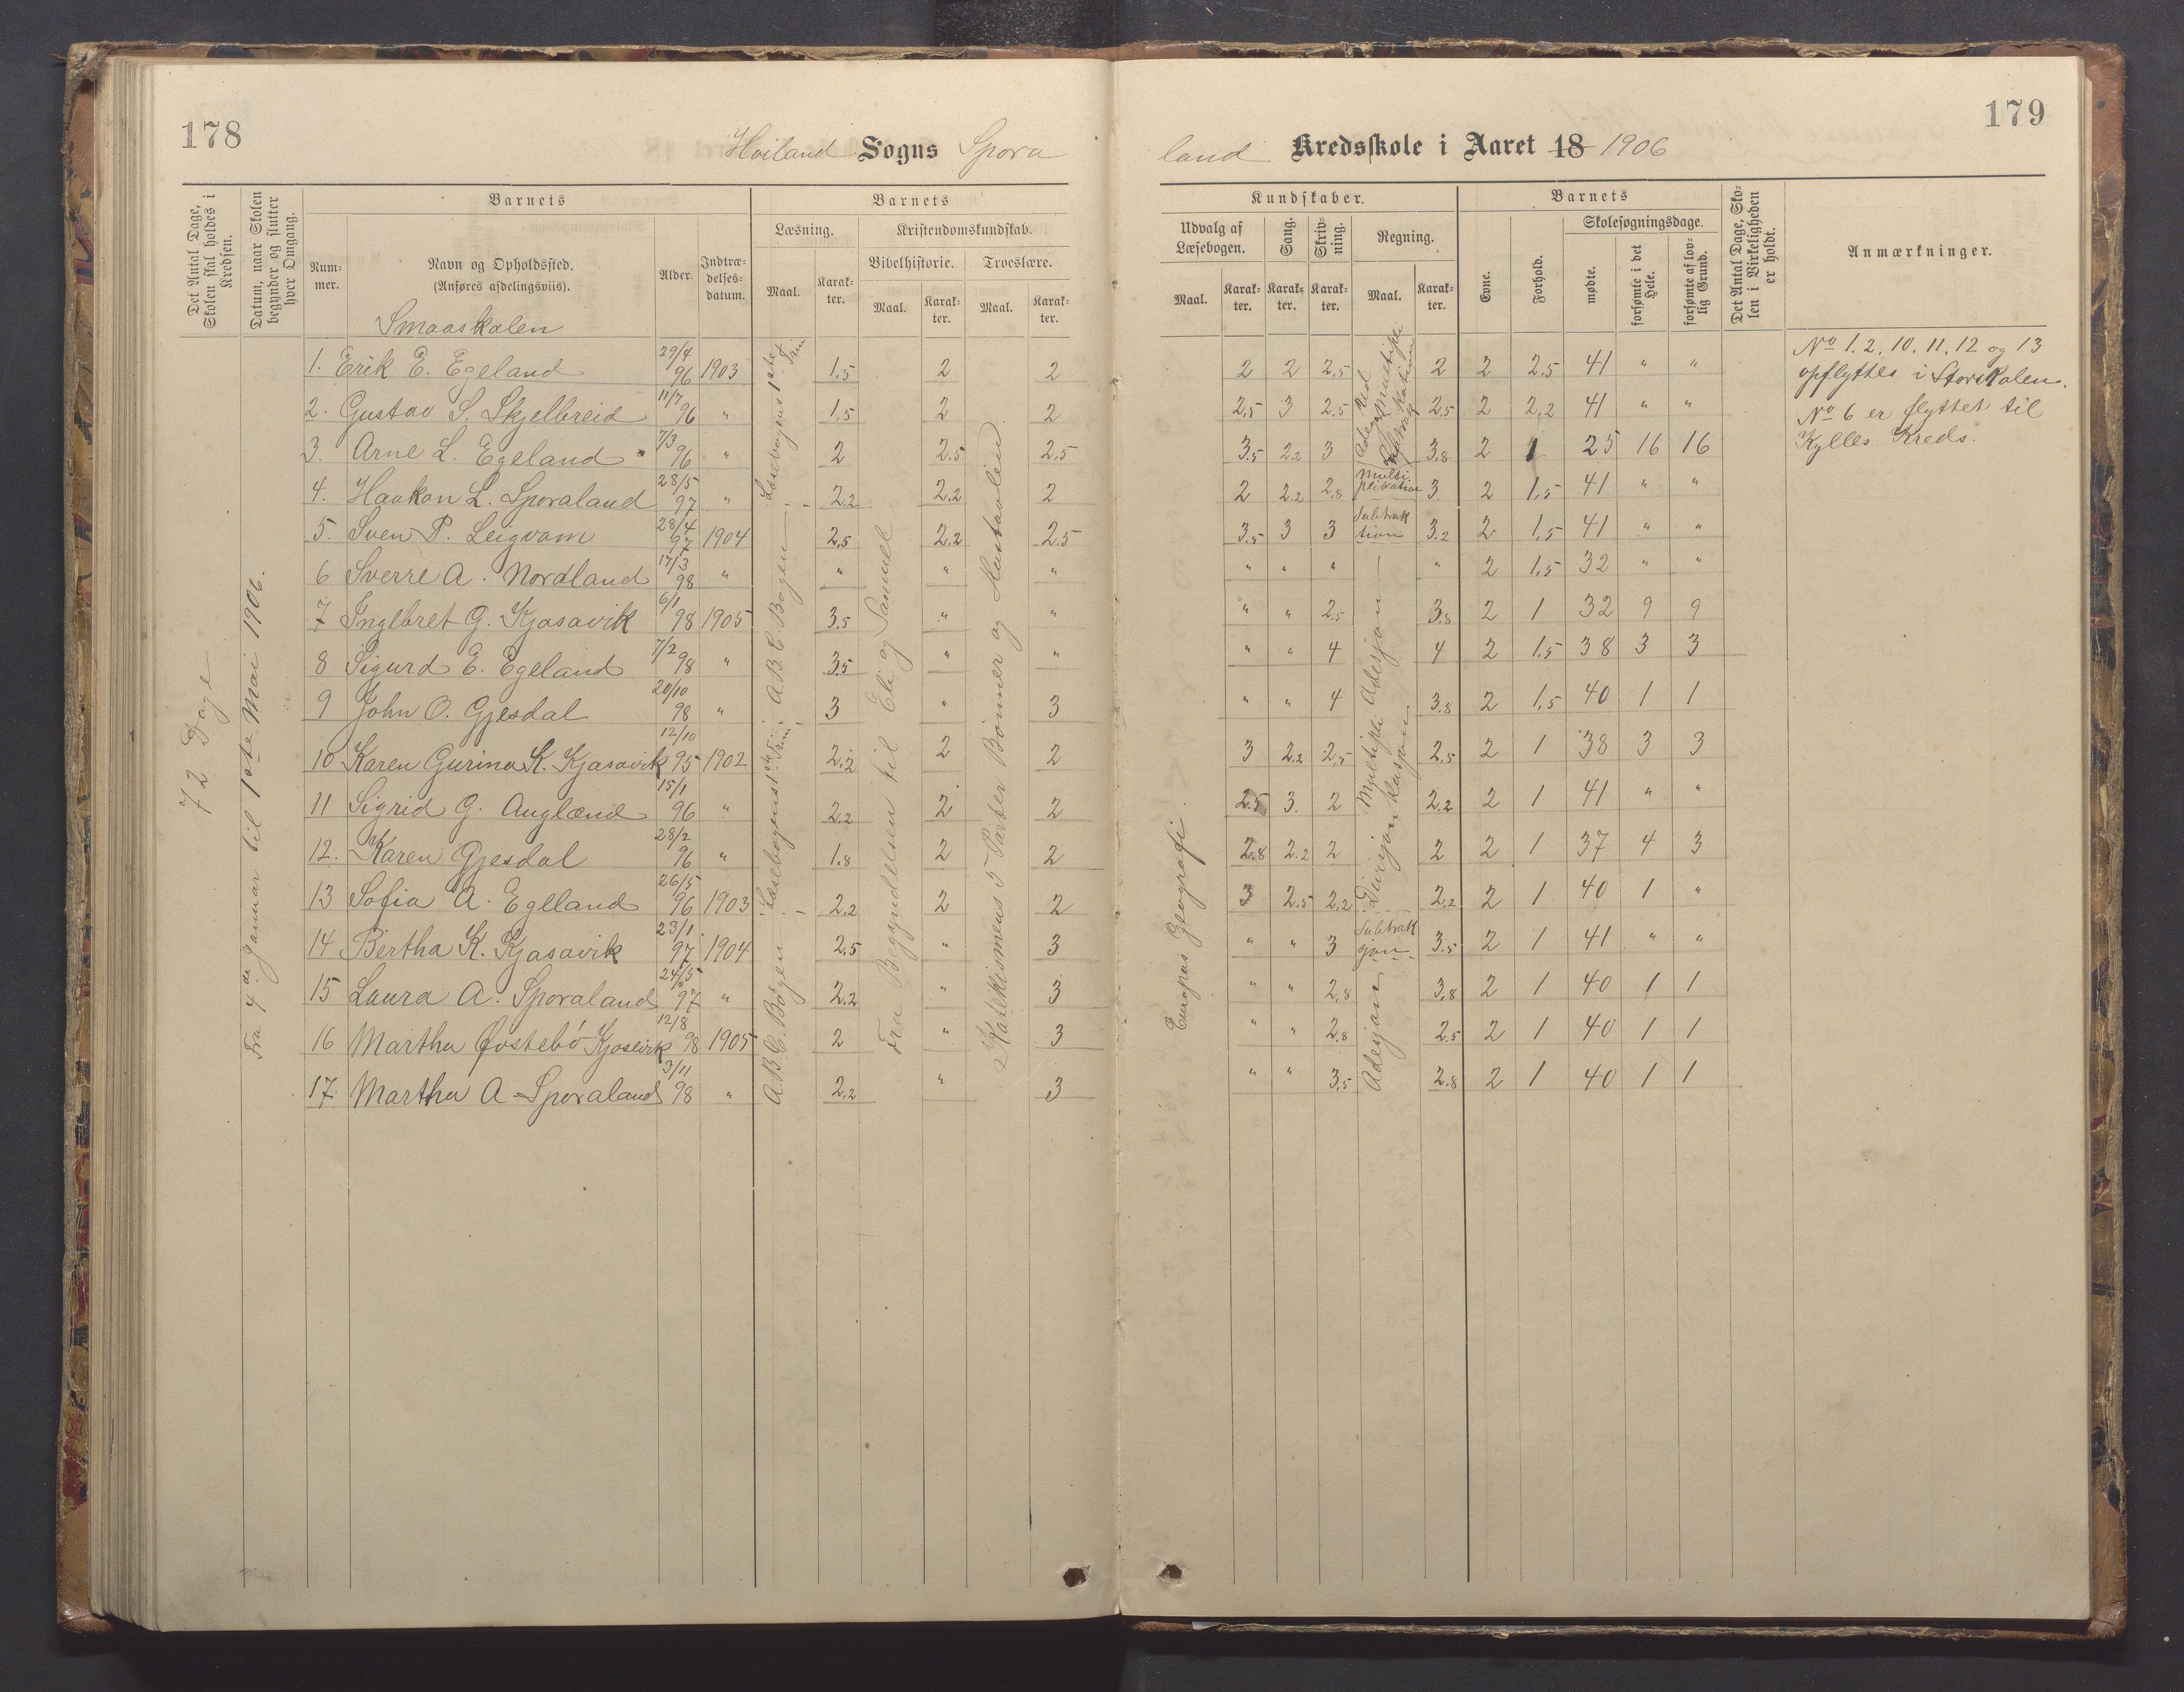 178
Høiland Sogns Spora
Det Antal Dage, Skolen skal holdes i Kredsen.
Datum, naar Skolen begynder og slutter hver Omgang.
Barnets
Barnets
Num-mer.
Navn og Opholdssted.
(Anføres afdelingsviis).
Alder.
Indtræ-delses-datum.
Læsning.
Kristendomskundskab.
Bibelhistorie.
Troeslære.
Maal.
Karak-ter.
Maal.
Karak-ter.
Maal.
Karak-ter.
Smaaskolen
72 Dage
Fra 4de Januar til 1ste Mai 1906.
1. Erik E. Egeland 29/4 96 1903 1,5 2 2
2. Gustav S. Skjelbreid 11/7 96 " 1,5 2 2
3. Arne L. Egeland 7/3 96 " 2 2,5 2,5
4. Haakon L. Sporaland 28/5 97 " 2,2 2,2 2
5. Sven P. Leigvam 28/4 97 1904 2,5 2,2 2,5
6 Sverre A. Nordland 17/3 98 " " " "
7 Inglbret G. Kjosavik 6/1 98 1905 3,5 " "
8 Sigurd E. Egeland 7/2 98 " 3,5 " "
9 John O. Gjesdal 20/10 98 " 3 " 3
10 Karen Gurina K. Kjosavik 12/10 95 1902 2,2 2 2
11 Sigrid G. Auglænd 15/1 96 " 2,2 2 2
12. Karen Gjesdal 28/2 96 " 1,8 2 2
13 Sofia A. Egeland 26/5 96 1903 2,2 2 2
14 Bertha K. Kjosavik 23/1 97 1904 2,5 " 3
15 Laura A. Sporaland 24/5 97 " 2,2 " 3
16 Martha Øvstebö Kjosevik 12/8 98 1905 2 " 3
17. Martha A Sporaland 3/11 98 " 2,2 " 3
Læsebogens 1ste Trin
A.B.C. Bogen
Læsebogens 1ste Trin
A.B.C. Bogen
Fra Begyndelsen til Eli og Samuel
Katekismens 5 Parter Bønner og Hustavlen
179
land Kredsskole i Aaret 18 1906
Kundskaber.
Barnets
Udvalg af Læsebogen.
Sang.
Skriv-ning.
Regning.
Evne.
Forhold.
Skolesøgningsdage.
mødte.
forsømte i det Hele.
forsømte af lov-lig Grund.
Det Antal Dage, Sko-len i Virkeligheden er holdt.
Anmærkninger.
Maal.
Karak-ter.
Karak-ter.
Karak-ter.
Maal.
Karak-ter.
2 2 2,5 2 2 2,5 41 " "
2,5 3 2,5 2,5 2 2,2 41 " "
3,5 2,2 3 3,8 2 1 25 16 16
2 2,2 2,8 Multiplikation 3 2 1,5 41 " "
3,5 3 3 Subtraktion 3,2 2 1,5 41 " "
" " " " 2 1,5 32 " "
" " 2,5 3,8 2 1 32 9 9
" " 4 4 2 1,5 38 3 3
" " 4 3,8 2 1,5 40 1 1
3 2,2 2,5 2,5 2 1 38 3 3
2,5 3. 2 2,2 2 1 41 " "
2,8 2,2 2 2 2 1 37 4 3
3 2,5 2,2 2,2 2 1 40 1 "
" " 3 Subtraksjon 3,5 2 1 41 " "
" " 2,8 3,8 2 1 40 1 1
" " 2,8 2,5 2 1 40 1 1
" " 3,5 2,8 2 1 40 1 1
Europas Geografi.
Adisjon
Multipliklasjon
Divisjon
Adisjon
No 1. 2. 10. 11. 12 og 13
opflyttes i Storskolen.
No 6 er flyttet til
Kylles Kreds.